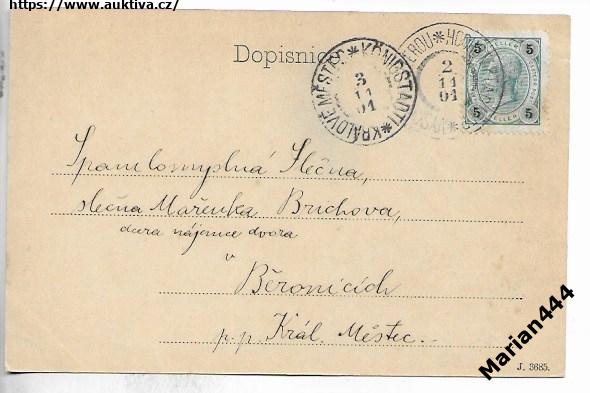 https://www.auktiva.cz/
Dopisnice
KÖNIGSTADTL * KRÁLOVÉ MĚSTEC *
3
11
01
2
11
01
5 HELLER 5
5 HELLER 5
Spanilomyslná Slečna,
slečna Mařenka Bruchova,
dcera nájemce dvora
v
Běronicích
p. p. Král. Městec.
J. 3685.
Marian444